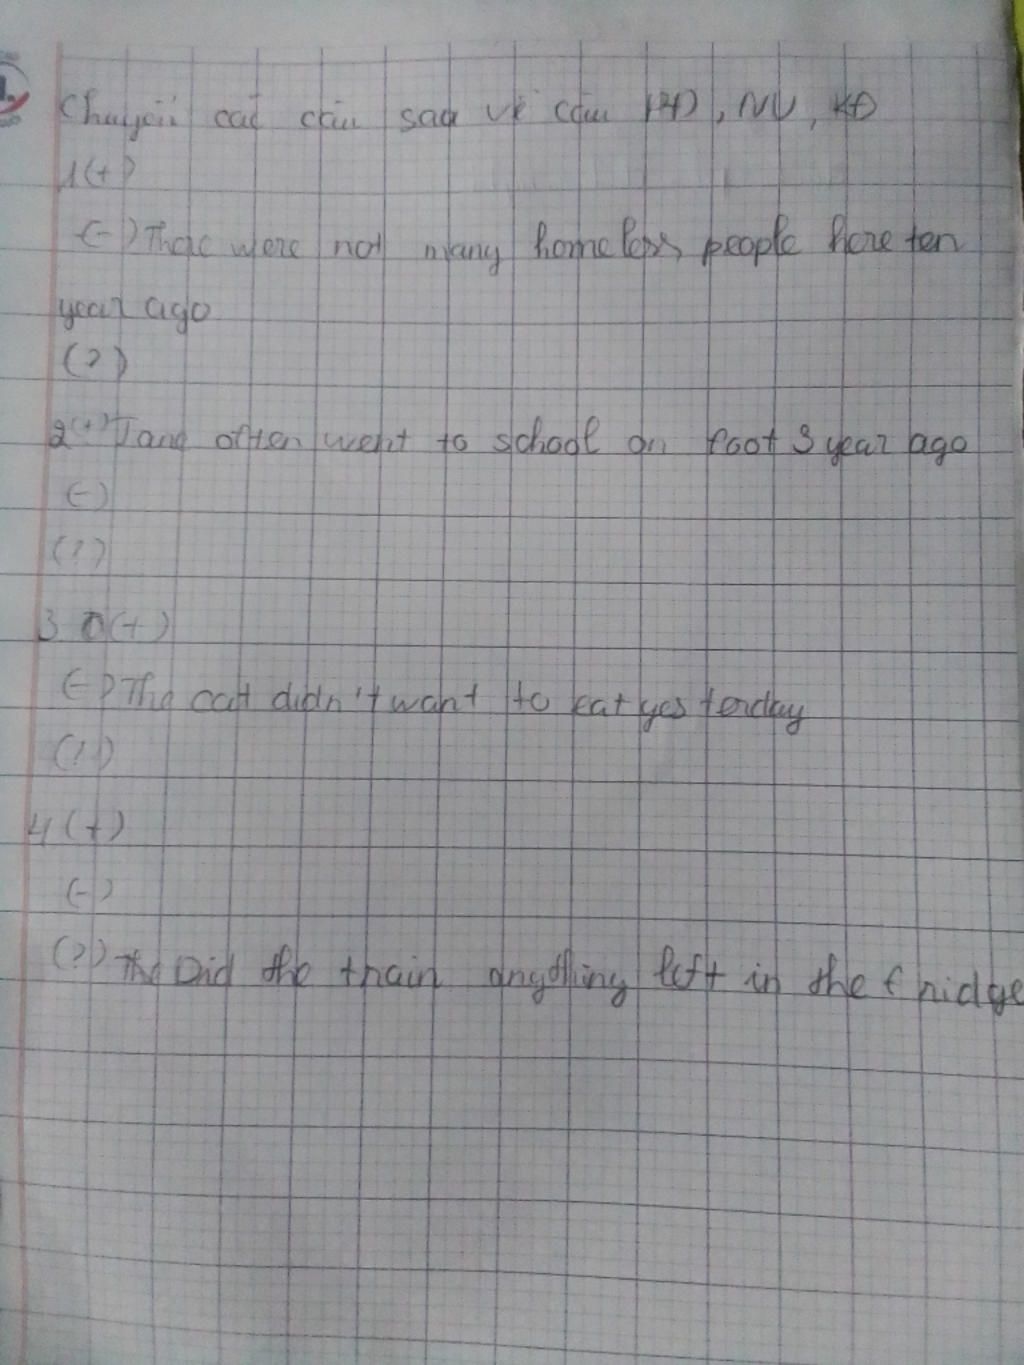 Chuyển các câu sau về câu PĐ, NV, KĐ
1(+)
(-) There were not many homeless people here ten
year ago
(?)
2(+) I and often went to school on foot 3 year ago
(-)
(?)
3 (+)
(-) The cat didn't want to eat yesterday
(?)
4 (+)
(-)
(?) The Did the train anything left in the fridge